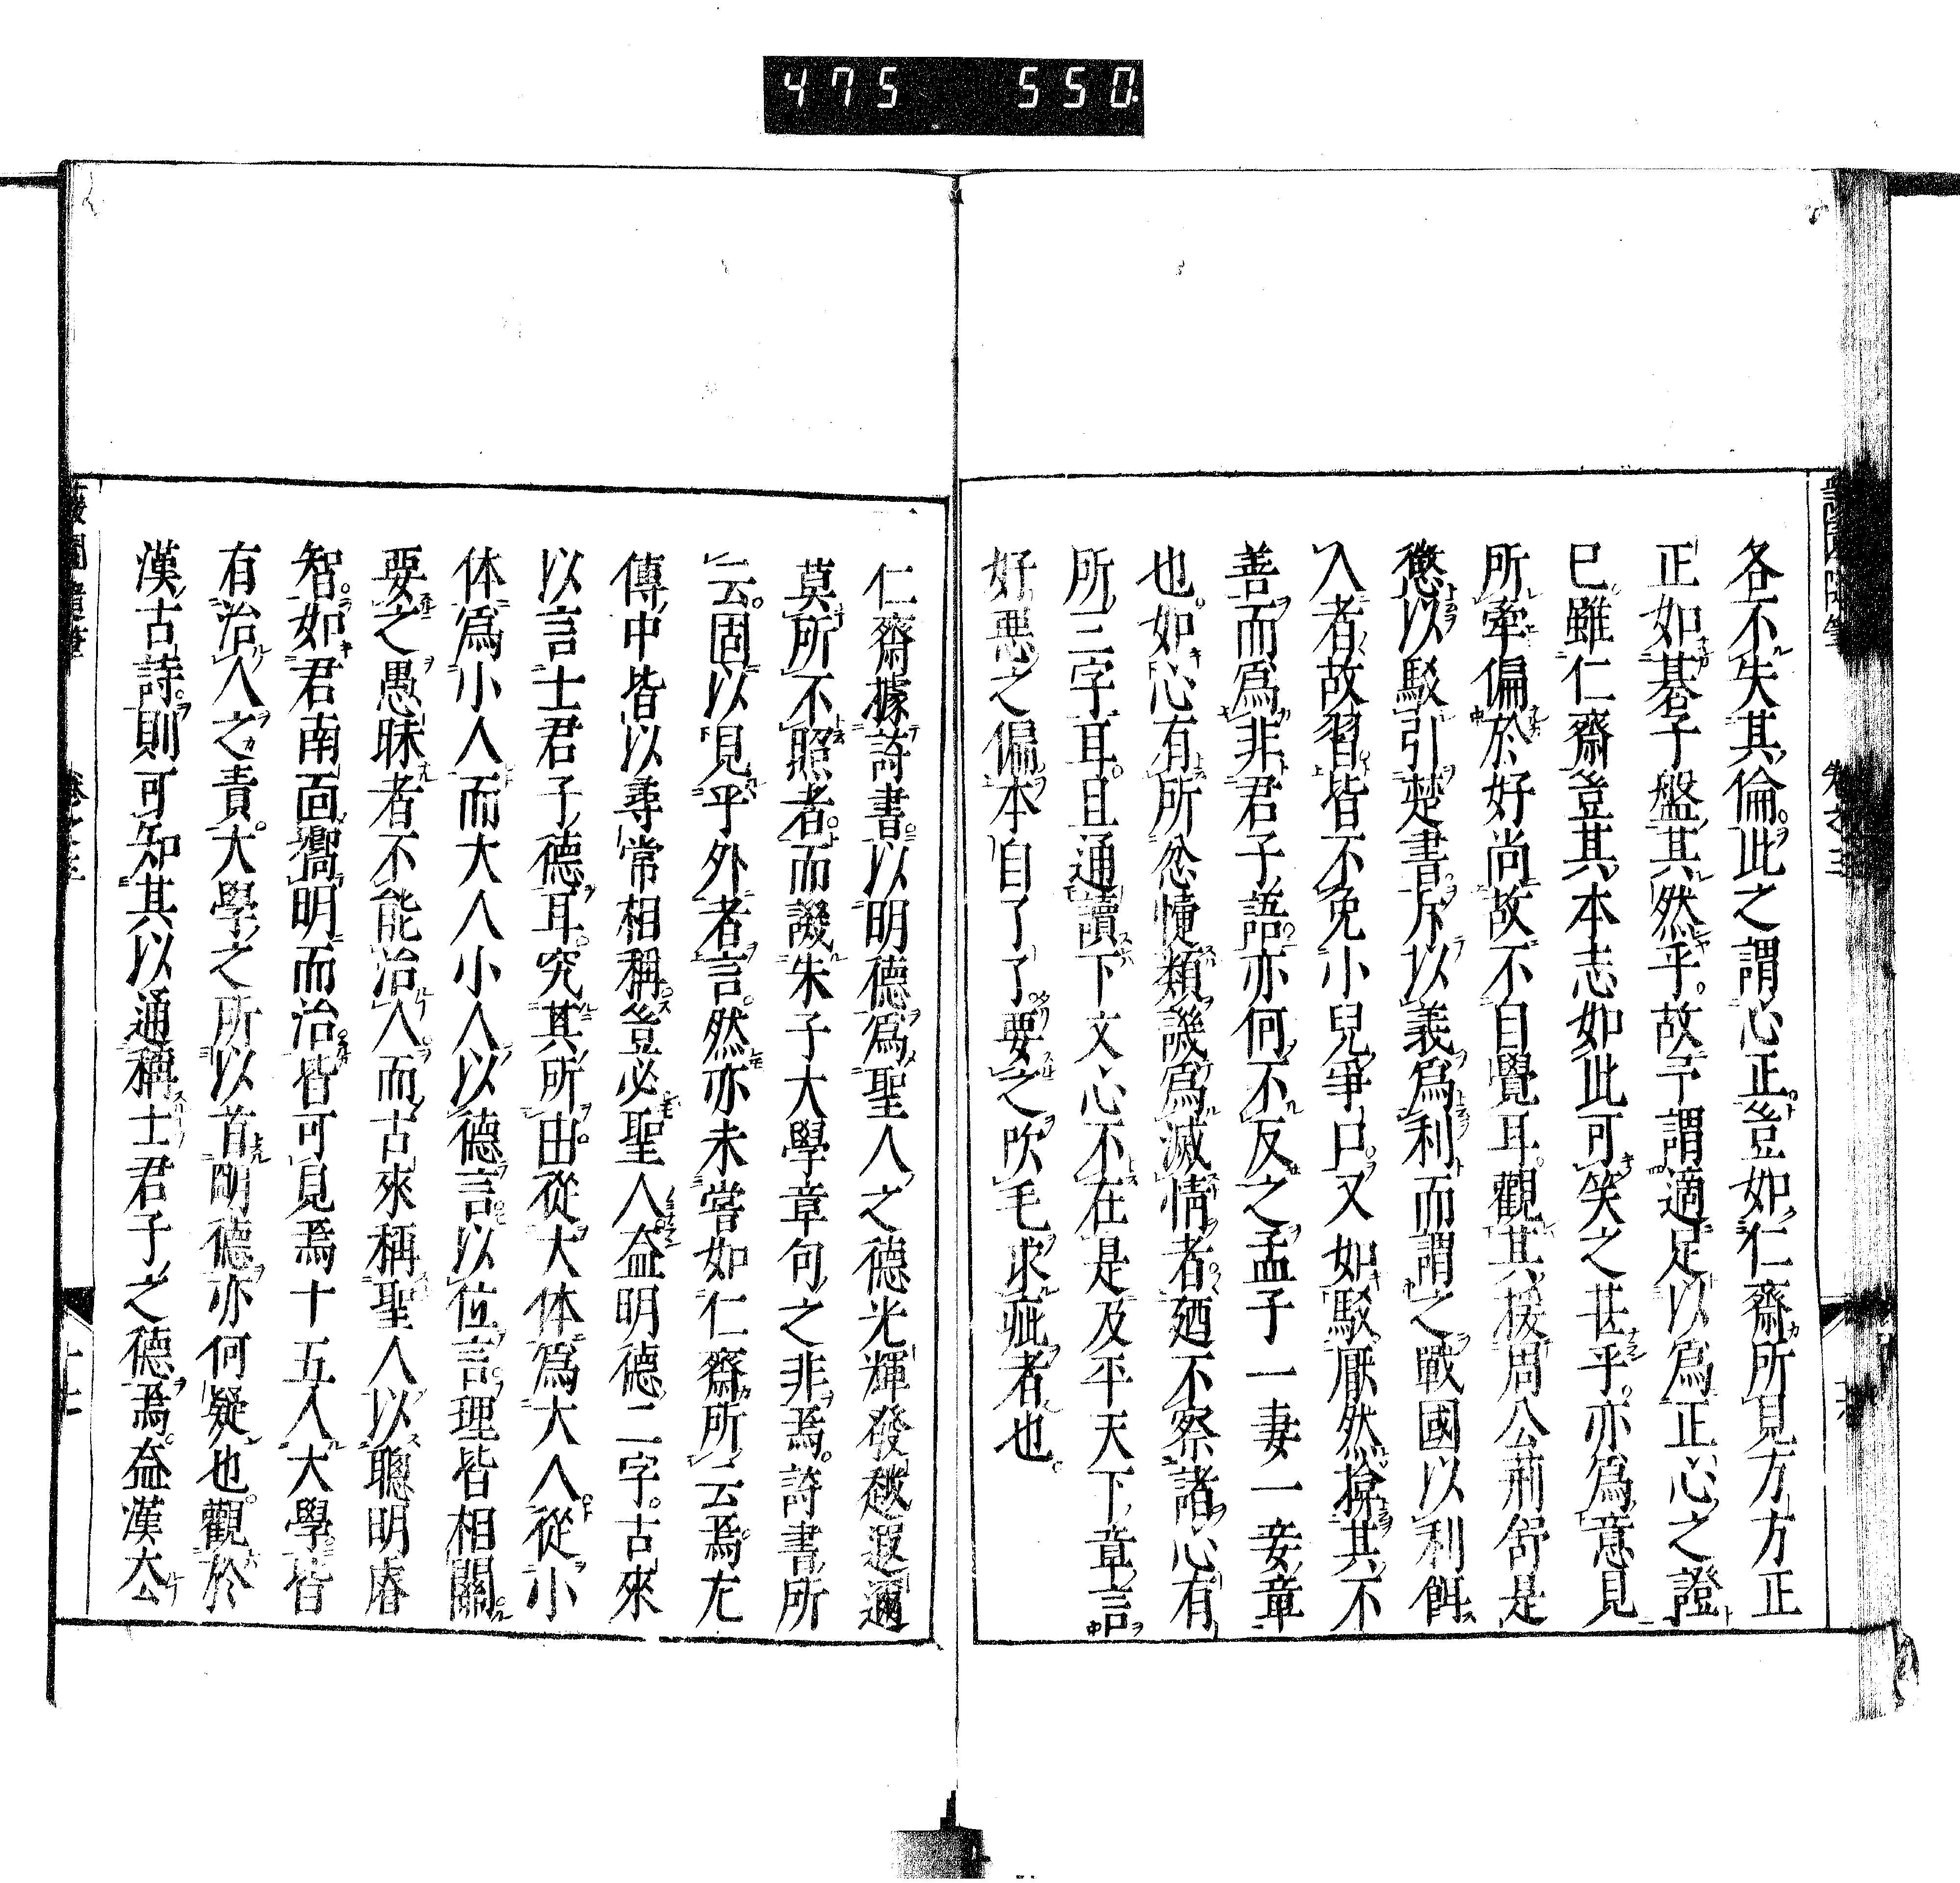 475 550.
各不失其倫此之謂心正豈如仁齋所見方方正
正如碁子盤其然乎故予謂適足以爲正心之證
巳雖仁齋豈其本志如此可笑之甚乎亦爲意見
所牽偏於好尚故不自覺耳觀其援周公荊舒是
懲以駁引楚書斥以義爲利而謂之戰國以利餌
入者故習皆不免小兒爭口又如駁厭然揜其不
善而爲非君子語亦何不反之孟子一妻一妾章
也如心有所忿懥類譏爲滅情者廼不察諸心有
所三字耳且通讀下文心不在是及平天下章言
好惡之偏本自了了要之吹毛求疵者也
仁齋據詩書以明德爲聖人之德光輝發越遐邇
莫所不照者而譏朱子大學章句之非焉詩書所
云固以見乎外者言然亦未嘗如仁齋所云焉尢
傳中皆以尋常相稱豈必聖人益明德二字古來
以言士君子德耳究其所由從大体爲大人從小
体爲小人而大人小人以德言以位言理皆相關
要之愚昧者不能治人而古來稱聖人以聰明睿
智如君南面嚮明而治皆可見焉十五人大學皆
有治人之責大學之所以首明德亦何疑也觀於
漢古詩則可知其以通稱士君子之德焉益漢去